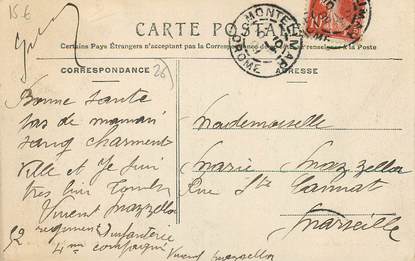 15 €
CARTE POSTALE
Certains Pays Étrangers n'acceptent pas la Correspondance
renseigner à la Poste
MONTELIMAR
DROME
CORRESPONDANCE
26
ADRESSE
Bonne santé
pas de mamau
sang charment
ville et Je suis
tres bien Tombé
Vincent Mazzella
52 regiment d'infanterie
4ième compagnie
Vincent Mazzella
Mademoiselle
Marie Mazzella
Rue Ste Cannat
Marseille